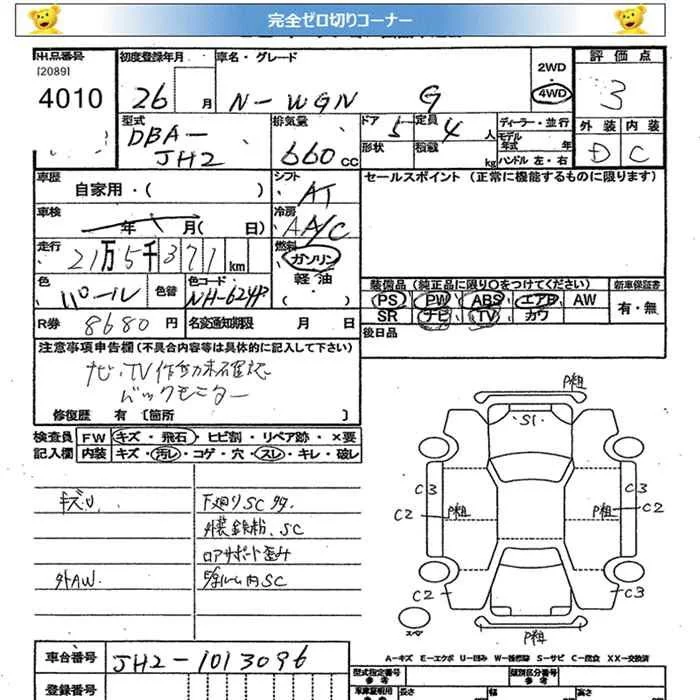 完全ゼロ切りコーナー
出品番号 初度登録年月 車名・グレード 2WD 評価点
[2089] 4010 26 月 N-WGN G 4WD 3
型式 排気量 ドア 定員 ディーラー・並行 外装 内装
DBA-JH2 660cc 5 4人 モデル年式 年 D C
形状 積載 kg ハンドル 左・右
車歴 シフト セールスポイント (正常に機能するものに限ります)
自家用・( ) AT
車検 冷房
年 月( 日) AA/C
走行 燃料
21万5千371km ガソリン
色 色替 色コード 軽油
パール NH-624P ・( )
装備品 (純正品に限り〇をつけてください) 新車保証書
PS PW ABS エアB AW 有・無
SR ナビ TV カワ
R券 8680円 名変通知期限 月 日 後日品
注意事項申告欄(不具合内容等は具体的に記入して下さい)
ナビ、TV作動未確認
バックモニター
修復歴 有 〔箇所 〕
検査員 FW キズ・飛石・ヒビ割・リペア跡・×要
記入欄 内装 キズ・汚レ・コゲ・穴・スレ・キレ・破レ
キズU 下廻りSC多
外装鉄粉、SC
ロアサポート歪み
外AW SC
P粗
S1
C3 C3
C2 P粗 P粗 C2
C2 C3
スペア P粗
A-キズ E-エクボ U-凹み W-補修跡 S-サビ C-腐食 XX-交換済
車台番号 JH2-1013096 型式指定番号 参考 類別区分番号 参考
登録番号 車庫証明用 参考 長さ 幅 高さ